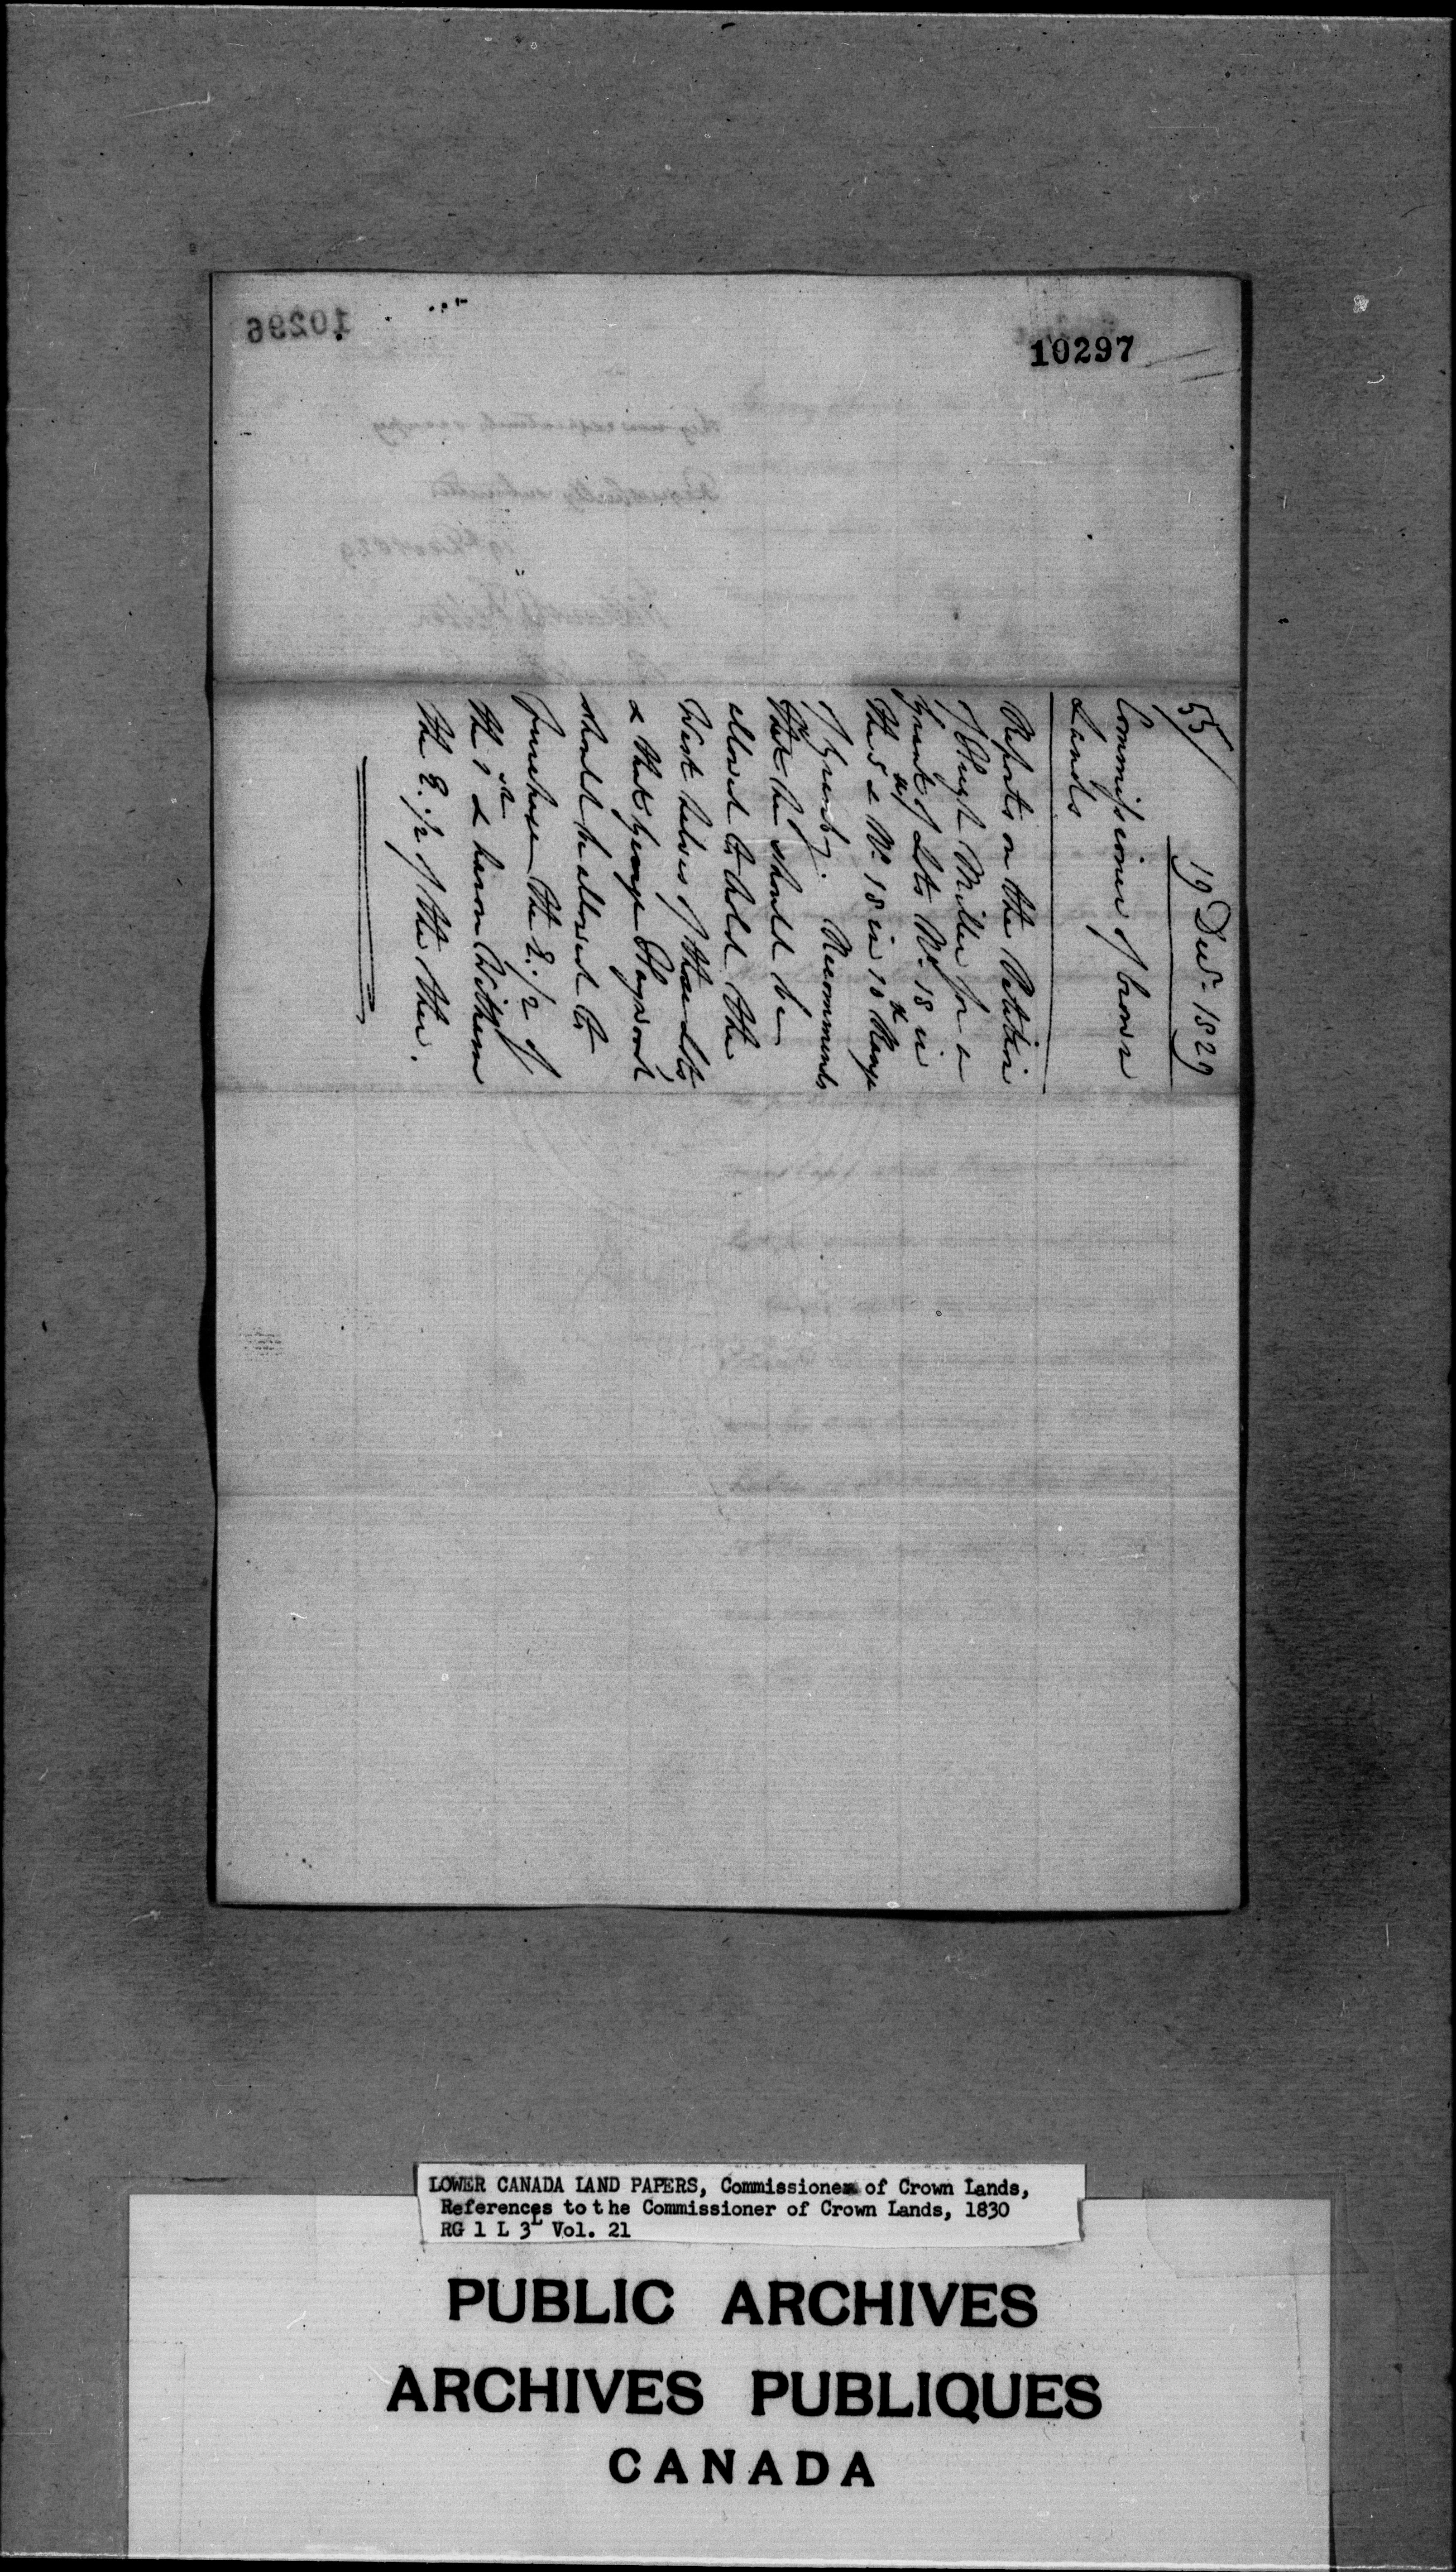 10297
55/
19 Decr. 1829
Commissioner of Crown
Lands
Reports on the Petition
of Hugh Miller for a
Grant of Lots No. 18 in
the & No. 18 in 10th Range
of Granby. Recommends
that he should be
allowed to hold the
West halves of those Lots
& that George Haywood
should be allowed to
Purchase the E. 1/2 of
the 1st & Aaron Withem
the E. 1/2 of the other.
LOWER CANADA LAND PAPERS, Commissioner of Crown Lands,
References to the Commissioner of Crown Lands, 1830
RG 1 L 3L Vol. 21
PUBLIC ARCHIVES
ARCHIVES PUBLIQUES
CANADA